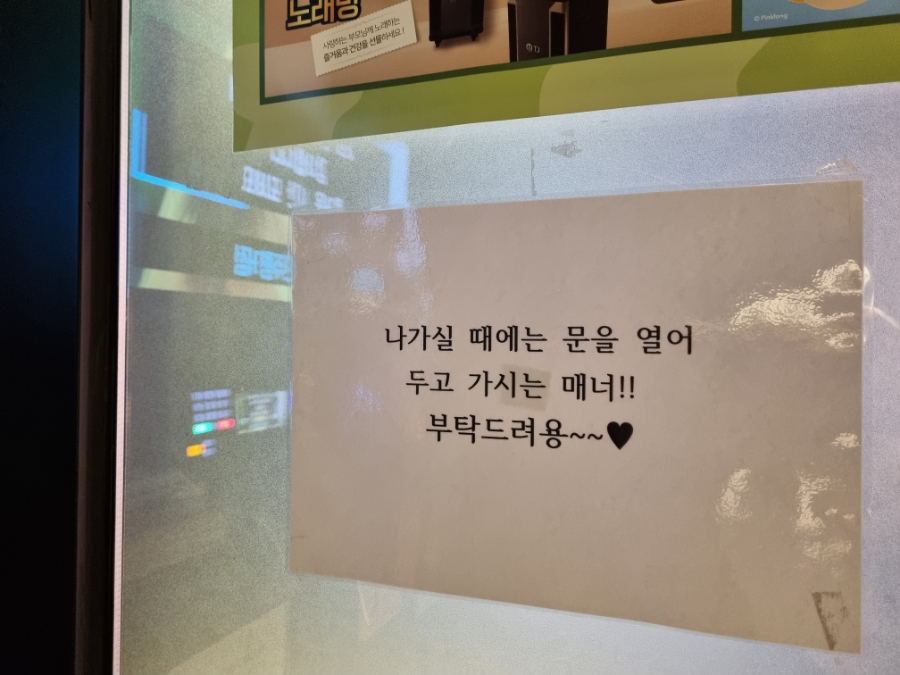 노래방
사랑하는 부모님께 노래하는
즐거움과 건강을 선물하세요!
TJ
© Pinkfong
나가실 때에는 문을 열어
두고 가시는 매너!!
부탁드려용~~♥